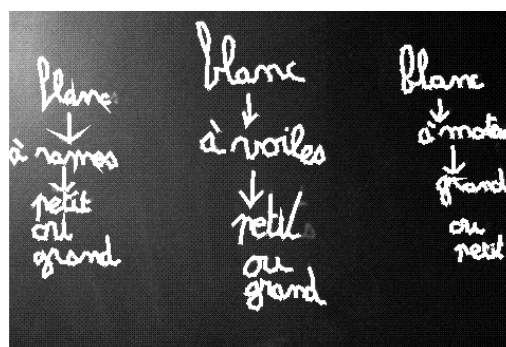 blanc
à rames
petit
ou
grand
blanc
à voiles
petit
ou
grand
blanc
à moteu
grand
ou
petit